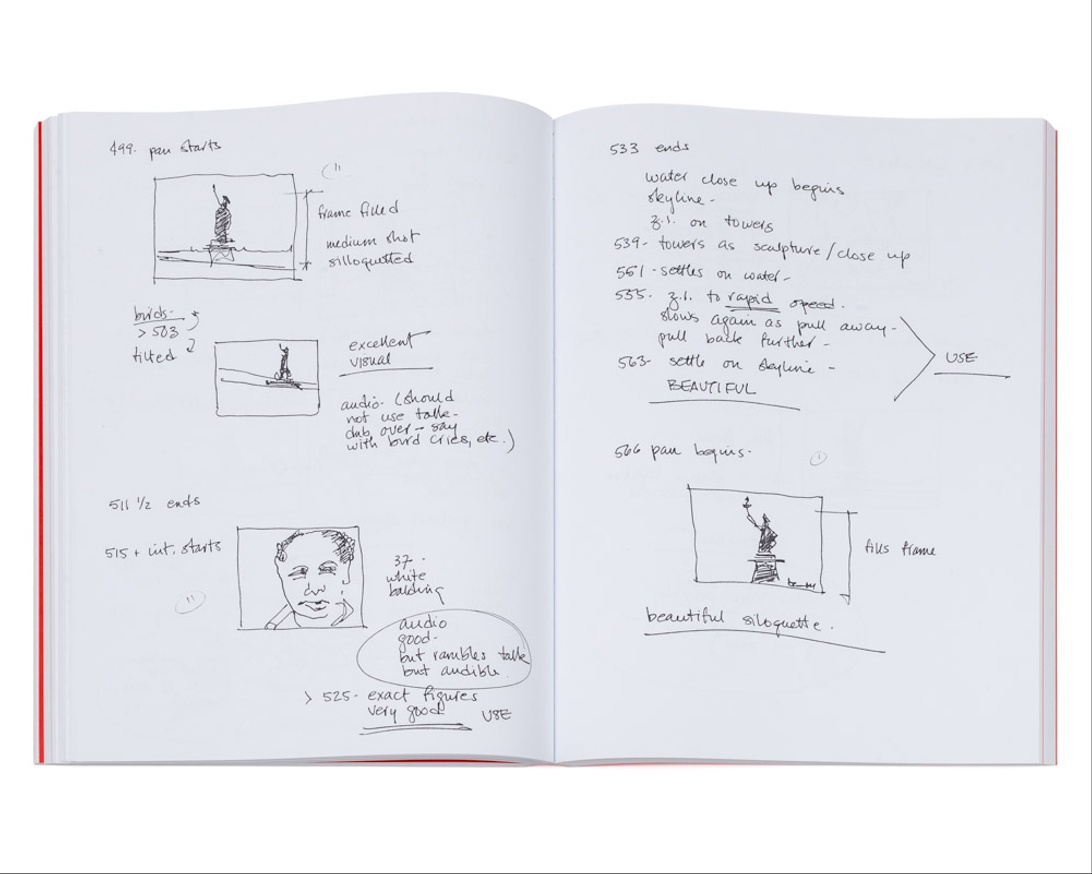 499. pan starts
11
frame filled
medium shot
silloquetted
birds-
> 503
tilted
excellent
visual
audio- (should
not use talk-
dub over - say
with bird cries, etc.)
511 ½ ends
515 + int. starts
11
37-
white
balding
audio
good-
but rambles talk
but audible.
> 525- exact figures
very good
USE
533 ends
water close up begins
skyline-
z.i. on towers
539- towers as sculpture/close up
551 - settles on water-
555- z.i. to rapid speed.
slows again as pull away-
pull back further-
563- settle on skyline -
BEAUTIFUL
USE
566 pan begins-
1
fills frame
beautiful siloquette.